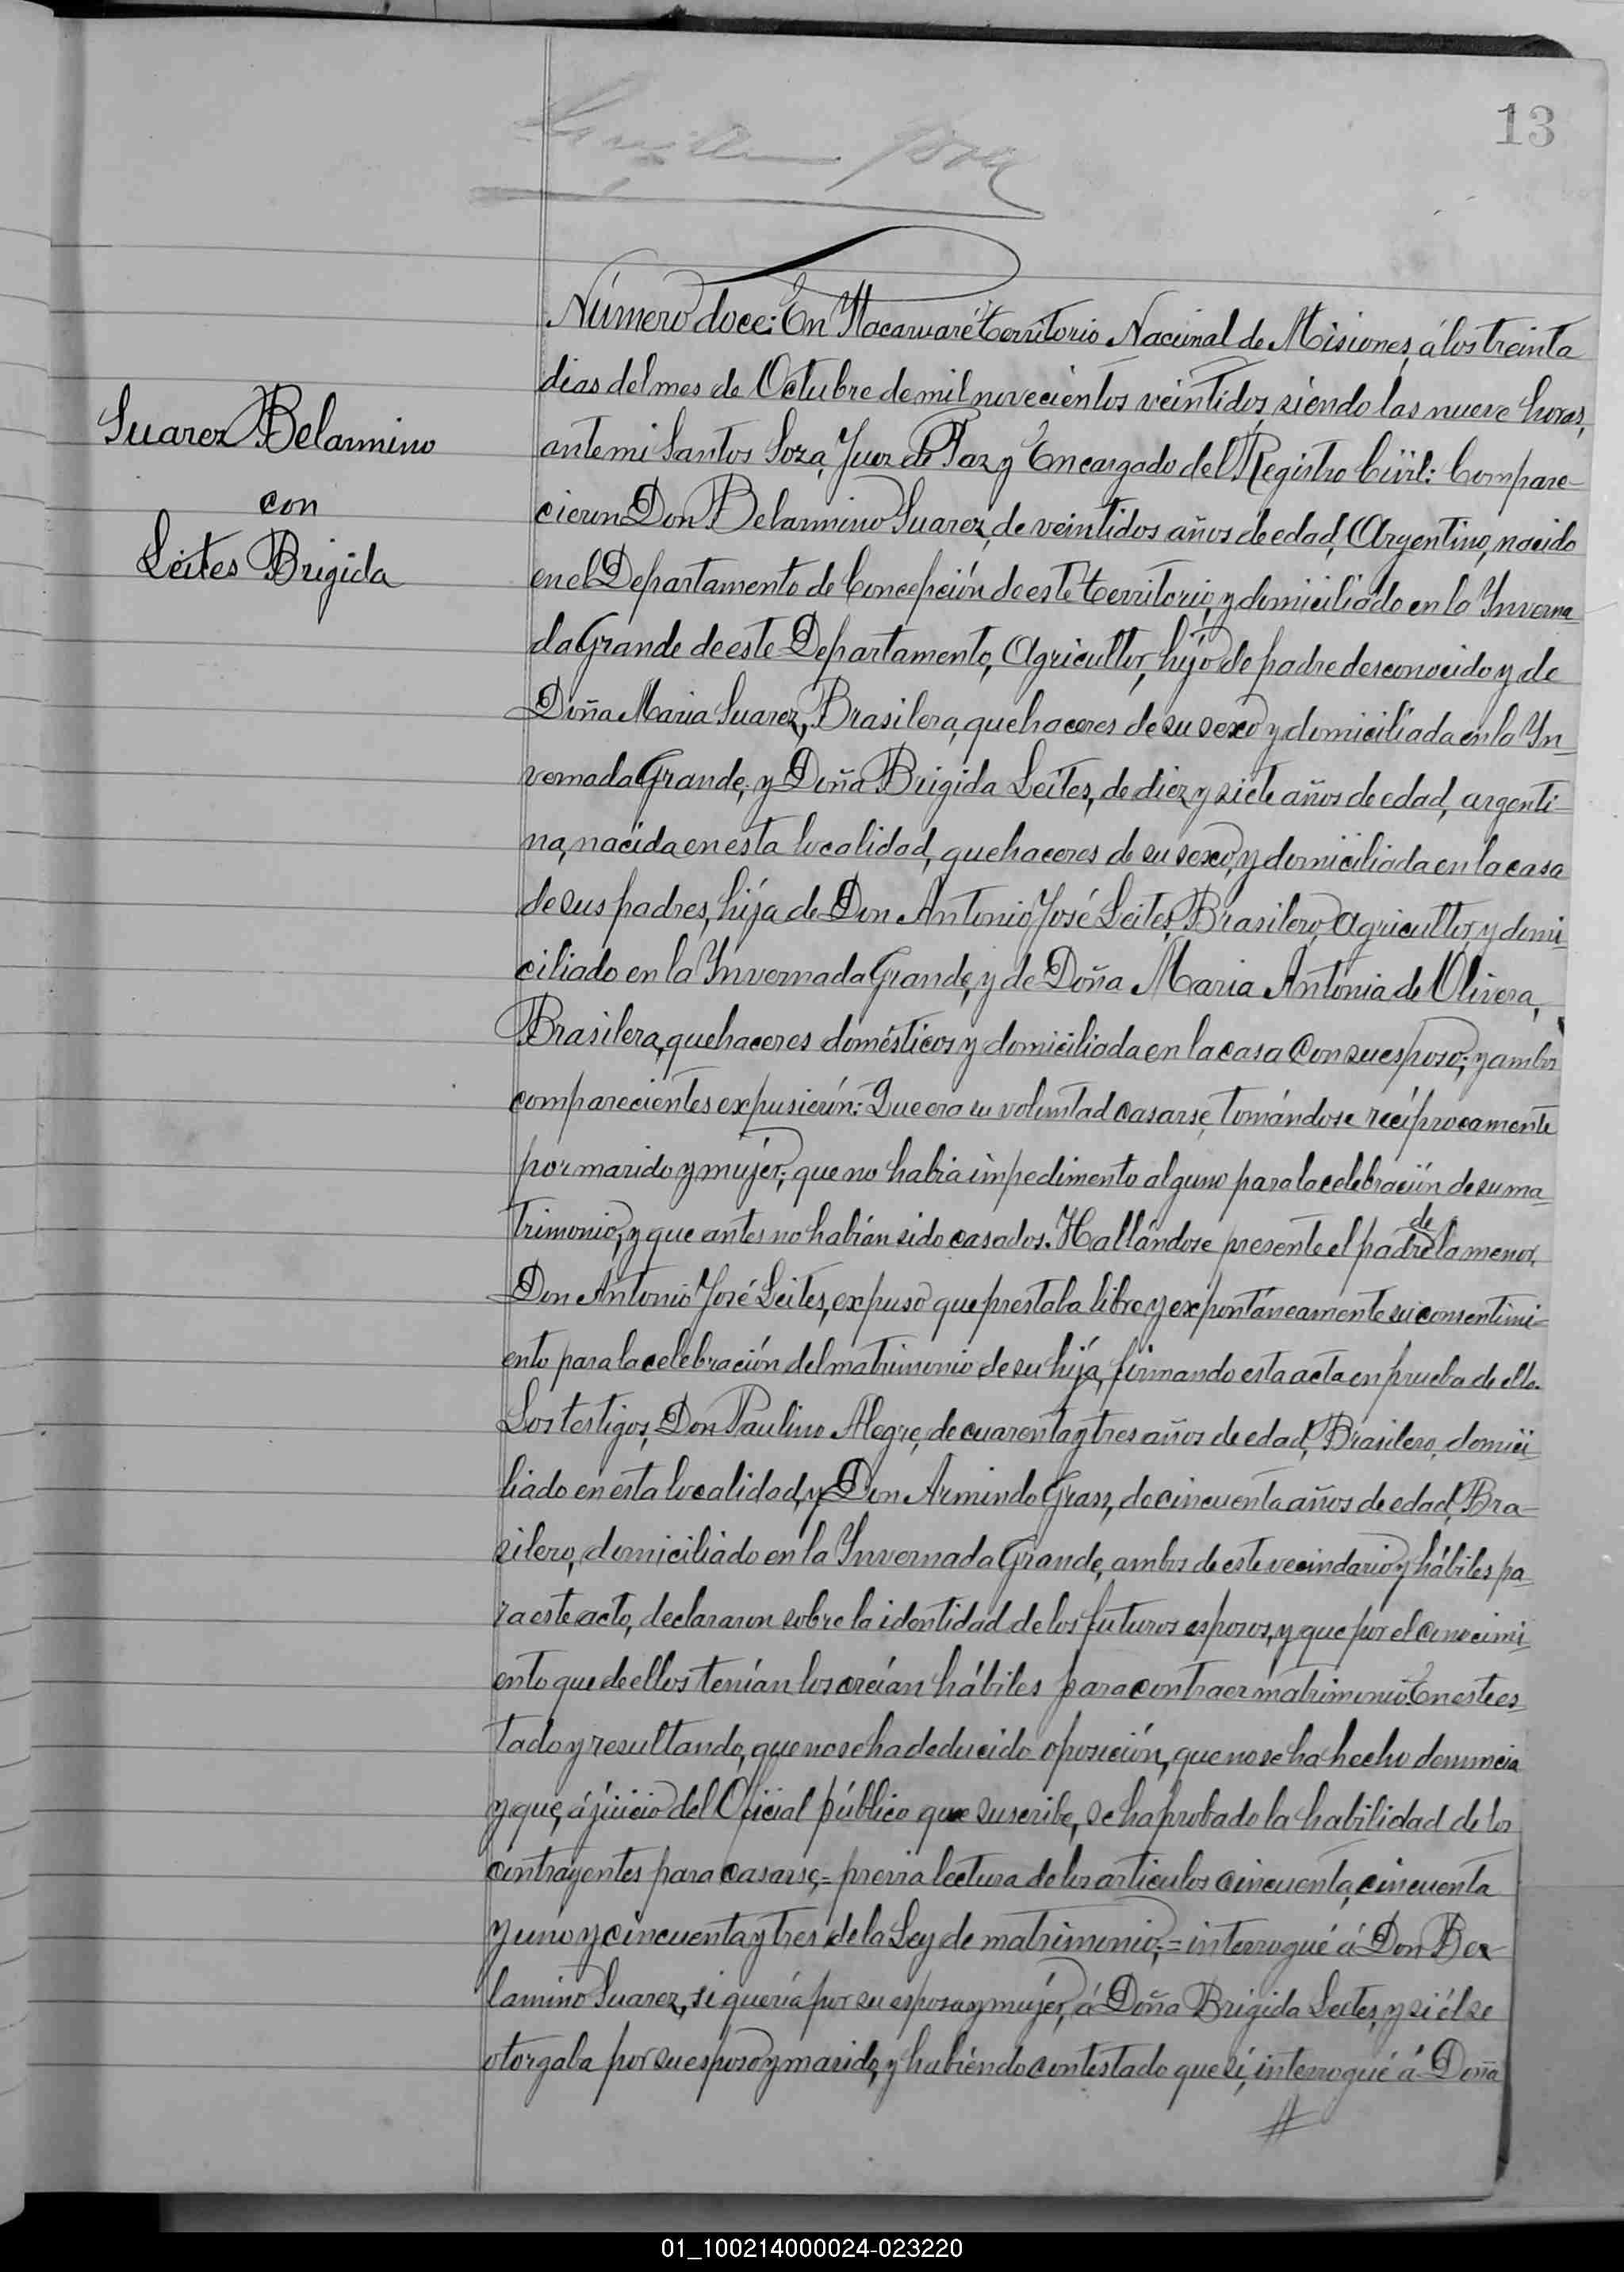 13
Suarez Belarmino
con
Leites Brigida
Número doce: En Itacaruaré territorio Nacional de Misiones, á los treinta
dias del mes de Octubre de mil novecientos veintidos, siendo las nueve horas,
ante mi Santos Soza, Juez de Paz y Encargado del Registro Civil: Compare-
cieron Don Belarmino Suarez, de veintidos años de edad, Argentino, nacido
en el Departamento de Concepción de este territorio, y domiciliado en la Inverna
da Grande de este Departamento, Agricultor, hijo de padre desconocido y de
Doña Maria Suarez, Brasilera, quehaceres de su sexo y domiciliada en la In-
vernada Grande; y Doña Brigida Leites, de diez y siete años de edad, argenti-
na, nacida en esta localidad, quehaceres de su sexo, y domiciliada en la casa
de sus padres, hija de Don Antonio José Leites, Brasilero, Agricultor, y domi-
ciliado en la Invernada Grande, y de Doña Maria Antonia de Olivera,
Brasilera, quehaceres domésticos y domiciliada en la casa con su esposo; y ambos
comparecientes expusierón: Que era su voluntad casarse, tomándose recíprocamente
por marido y mujer; que no habia impedimento alguno para la celebración de su ma-
trimonio, y que antes no habían sido casados. Hallándose presente el padre de la menor,
Don Antonio José Leites, expuso que prestaba libre y expontáneamente su consentimi-
ento para la celebración del matrimonio de su hija, firmando esta acta en prueba de ello.
Los testigos, Don Paulino Alegre, de cuarenta y tres años de edad, Brasilero, domici
liado en esta localidad, y Don Armindo Grass, de cincuenta años de edad, Bra-
silero, domiciliado en la Invernada Grande, ambos de este vecindario y hábiles pa-
ra este acto, declararon sobre la identidad de los futuros esposos, y que por el conocimi-
ento que de ellos tenían los creían hábiles para contraer matrimonio. En este es-
tado y resultando, que no se ha deducido oposición, que no se ha hecho denuncia
y que, á juicio del Oficial público que suscribe, se ha probado la habilidad de los
contrayentes para casarse; = previa lectura de los articulos cincuenta, cincuenta
y uno y cincuenta y tres de la Ley de matrimonio; = interrogué á Don Be-
larmino Suarez, si quería por su esposa y mujer, á Doña Brigida Leites, y si él se
otorgaba por su esposo y marido, y habiéndo contestado que sí, interrogué á Doña
01_100214000024-023220